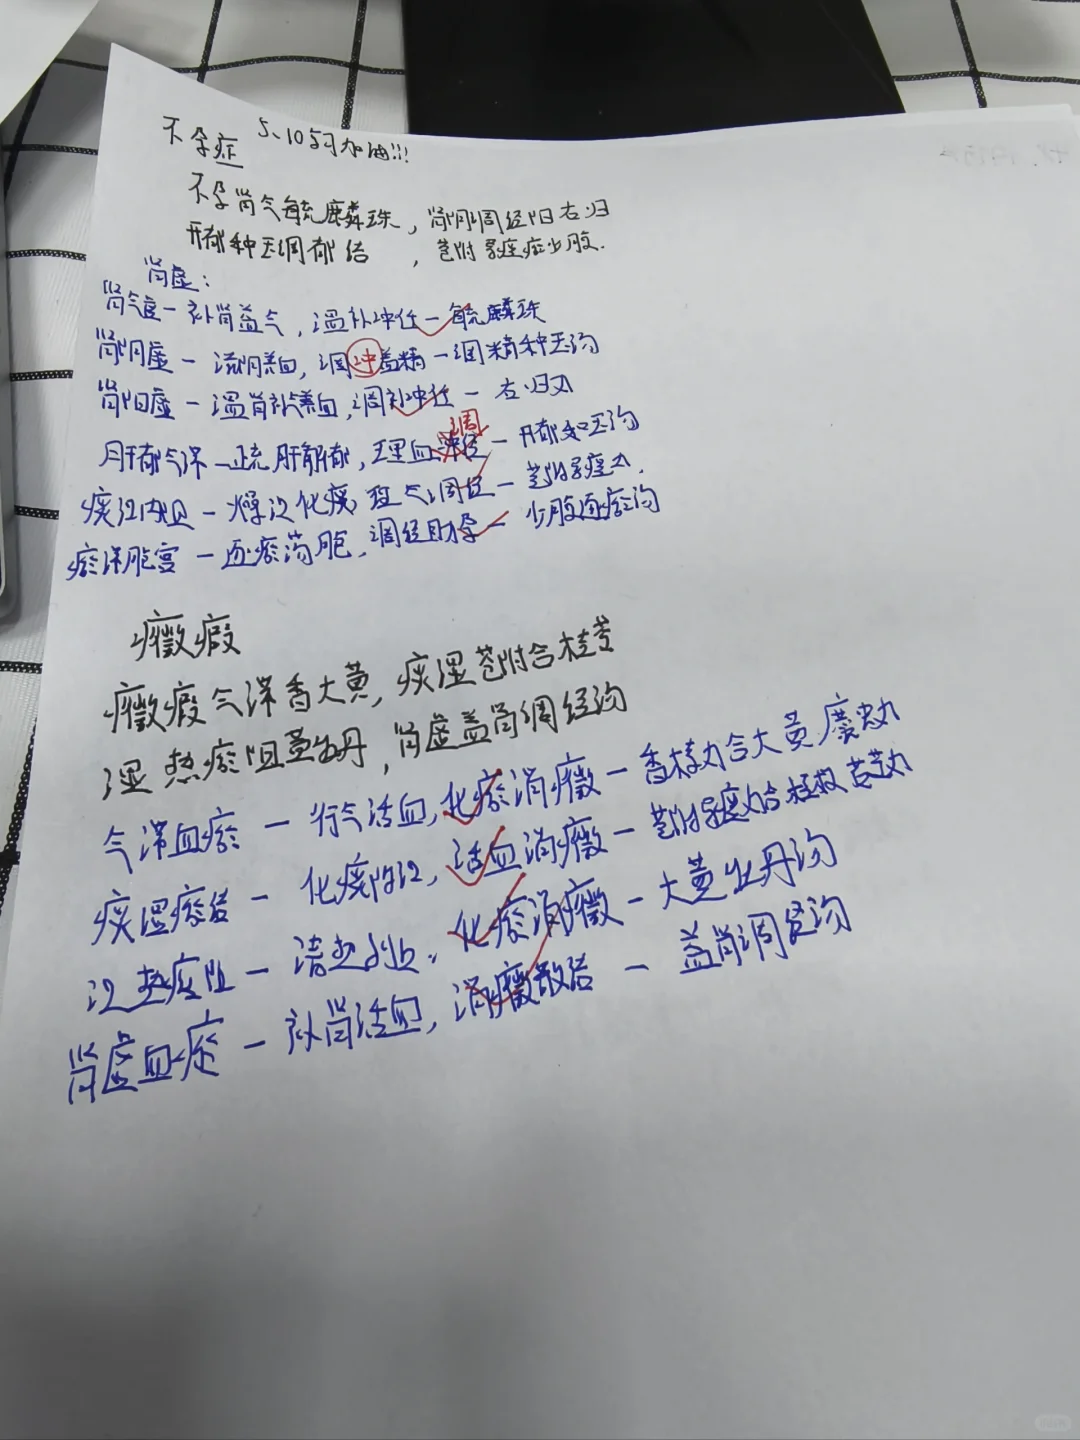 不孕症 5、10 加油!!!
不孕肾气毓麟珠，肾阴调经阳右归
开郁种玉调郁结，苍附导痰瘀少腹.
肾虚:
肾气虚一补肾益气，温补冲任一毓麟珠
肾阴虚一滋阴养血，调冲益精一调精种玉汤
肾阳虚一温肾补养血，调补冲任一右归丸
肝郁气滞一疏肝解郁，理血调经一开郁种玉汤
痰湿内阻一燥湿化痰，理气调经一苍附导痰丸.
瘀滞胞宫一逐瘀荡胞，调经助孕一少腹逐瘀汤
癥瘕
癥瘕气滞香大黄，痰湿苍附合桂苓
湿热瘀阻黄牡丹，肾虚益肾调经汤
气滞血瘀一行气活血，化瘀消癥一香棱丸合大黄䗪虫丸
痰湿瘀结一化痰除湿，活血消癥一苍附导痰丸合桂枝茯苓丸
湿热瘀阻一清热利湿，化瘀消癥一大黄牡丹汤
肾虚血瘀一补肾活血，消癥散结一益肾调经汤